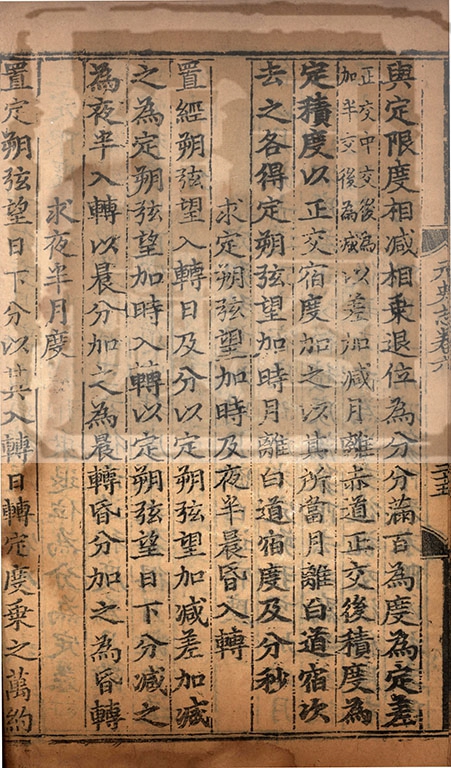 元史志卷六
三五
與定限度相減相乗退位為分分滿百為度為定差
正交中交後為加
半交後為減以差加減月離赤道正交後積度為
定積度以正交宿度加之以其所當月離白道宿次
去之各得定朔弦望加時月離白道宿度及分秒
求定朔弦望加時及夜半晨昏入轉
置經朔弦望入轉日及分以定朔弦望加減差加減
之為定朔弦望加時入轉以定朔弦望日下分減之
為夜半入轉以晨分加之為晨轉昏分加之為昏轉
求夜半月度
置定朔弦望日下分以其入轉日轉定度乗之萬約